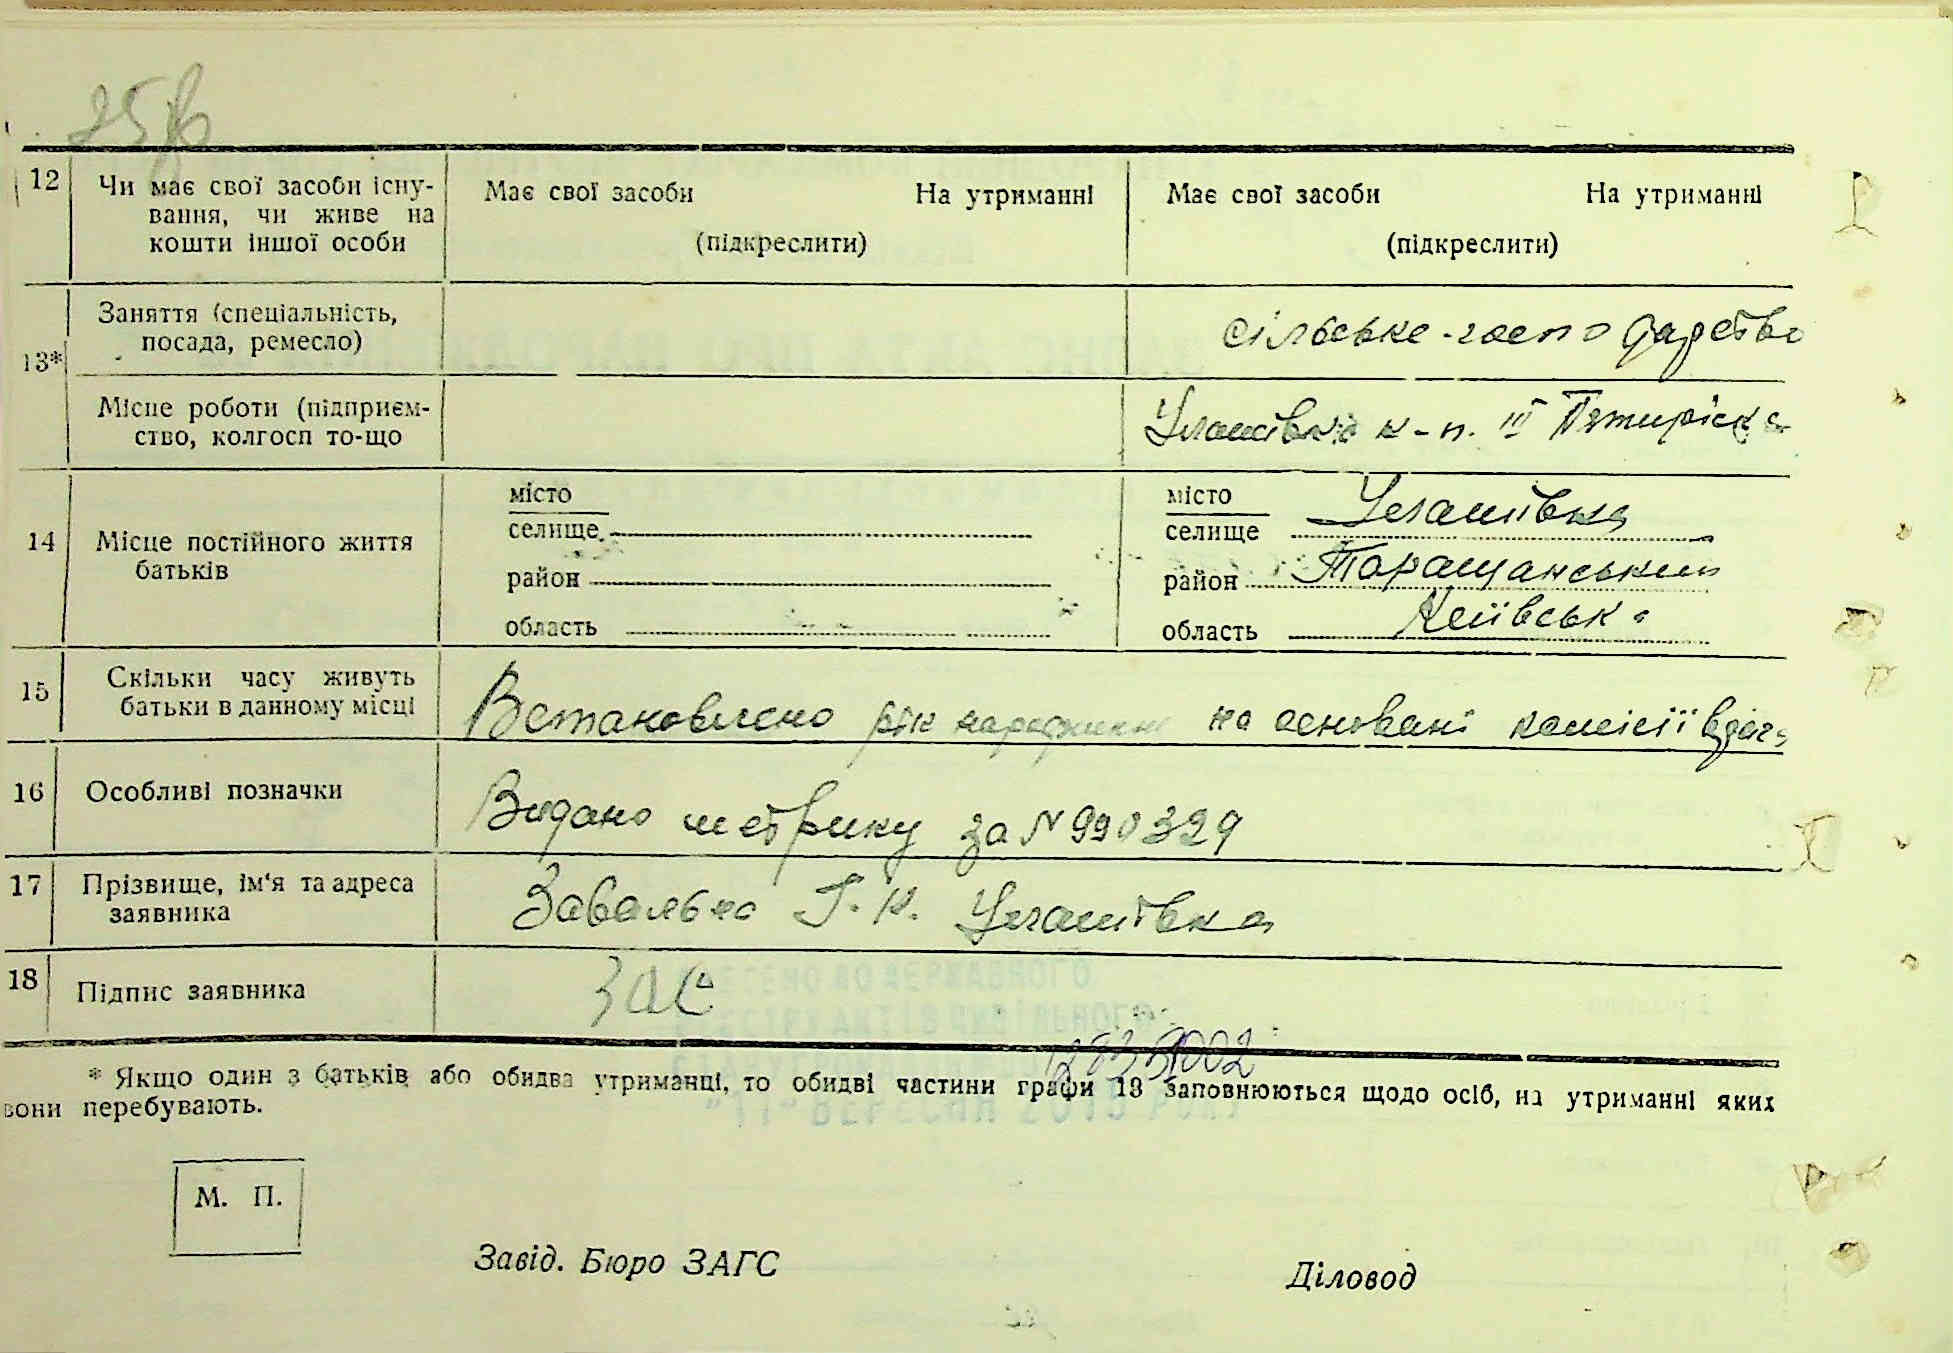 12 Чи має свої засоби існу-
вання, чи живе на
кошти іншої особи
Має свої засоби На утриманні
(підкреслити)
Має свої засоби На утриманні
(підкреслити)
13*
Заняття (спеціальність,
посада, ремесло)
сільське-господарство
Місце роботи (підприєм-
ство, колгосп то-що
к-п. III Пятирічка
14 Місце постійного життя
батьків
місто
селище
район
область
місто
селище Улашівка
район Таращанський
область Київська
15 Скільки часу живуть
батьки в данному місці
Встановлено рік народження на основані комісії
16 Особливі позначки
Видано метрику за N 990329
17 Прізвище, ім'я та адреса
заявника
Завально Г. К. Улашівка
18 Підпис заявника
Зав
ВНЕСЕНО ДО ДЕРЖАВНОГО
РЕЄСТРУ АКТІВ ЦИВІЛЬНОГО
СТАНУ ГРОМАДЯН
"11" ВЕРЕСНЯ 2015 РОКУ
* Якщо один з батьків або обидва утриманці, то обидві частини графи 13 заповнюються щодо осіб, на утриманні яких
вони перебувають.
М. П.
Завід. Бюро ЗАГС
Діловод